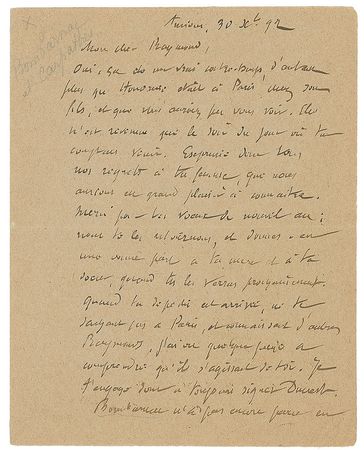 30 Xbre 92
Mon cher Raymond,
Oui, ça do un vrai contre-temps d'autant
plus que Honorine était à Paris, chez son
fils, et que vous auriez pu vous voir. Elle
n'est revenue que le soir du jour où tu
comptais venir. Exprime donc tous
nos regrets à ta femme, que nous
aurions eu grand plaisir à connaître.
Merci pour tes vœux de nouvel an ;
nous te les retournons, et donnes-en
une bonne part à ta mère et à ta
sœur, quand tu les verras prochainement.
Quand ta dépêche est arrivée, ne te
sachant pas à Paris, et connaissant d'autres
Raymonds, j'ai eu quelque peine à
comprendre qu'il s'agissait de toi. Je
t'engage donc à toujours signer
Bombarnac n'a pas encore paru en
Bombarnac
et